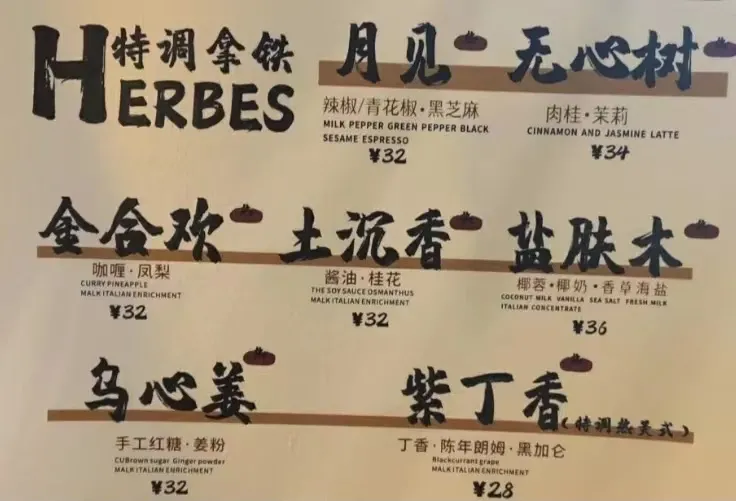 特调拿铁
HERBES
月见
辣椒/青花椒·黑芝麻
MILK PEPPER GREEN PEPPER BLACK
SESAME ESPRESSO
¥32
无心树
肉桂·茉莉
CINNAMON AND JASMINE LATTE
¥34
金合欢
咖喱·凤梨
CURRY PINEAPPLE
MALK ITALIAN ENRICHMENT
¥32
土沉香
酱油·桂花
THE SOY SAUCE OSMANTHUS
MALK ITALIAN ENRICHMENT
¥32
盐肤木
椰蓉·椰奶·香草海盐
COCONUT MILK VANILLA SEA SALT FRESH MILK
ITALIAN CONCENTRATE
¥36
乌心姜
手工红糖·姜粉
CUBrown sugar Ginger powder
MALK ITALIAN ENRICHMENT
¥32
紫丁香(特调热美式)
丁香·陈年朗姆·黑加仑
Blackcurrant grape
MALK ITALIAN ENRICHMENT
¥28